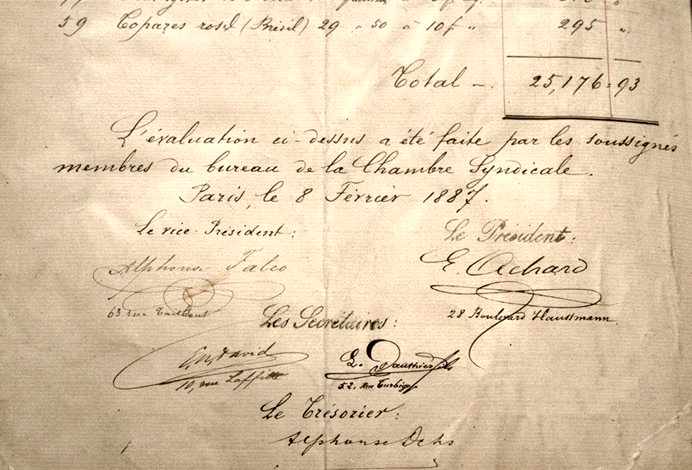 59 Topazes roses (Brésil) 29 " 50 à 10f " 295 "
Total — 25,176 = 93
L'évaluation ci-dessus a été faite par les soussignés
membres du bureau de la Chambre Syndicale.
Paris, le 8 Février 1887.
Le vice-Président: Le Président:
Alphonse Falco E. Achard
63 rue Taitbout 28 Boulevard Haussmann
Les Secrétaires:
David
10, rue Laffitte 52. Rue Turbigo
Le Trésorier:
Alphonse Ochs